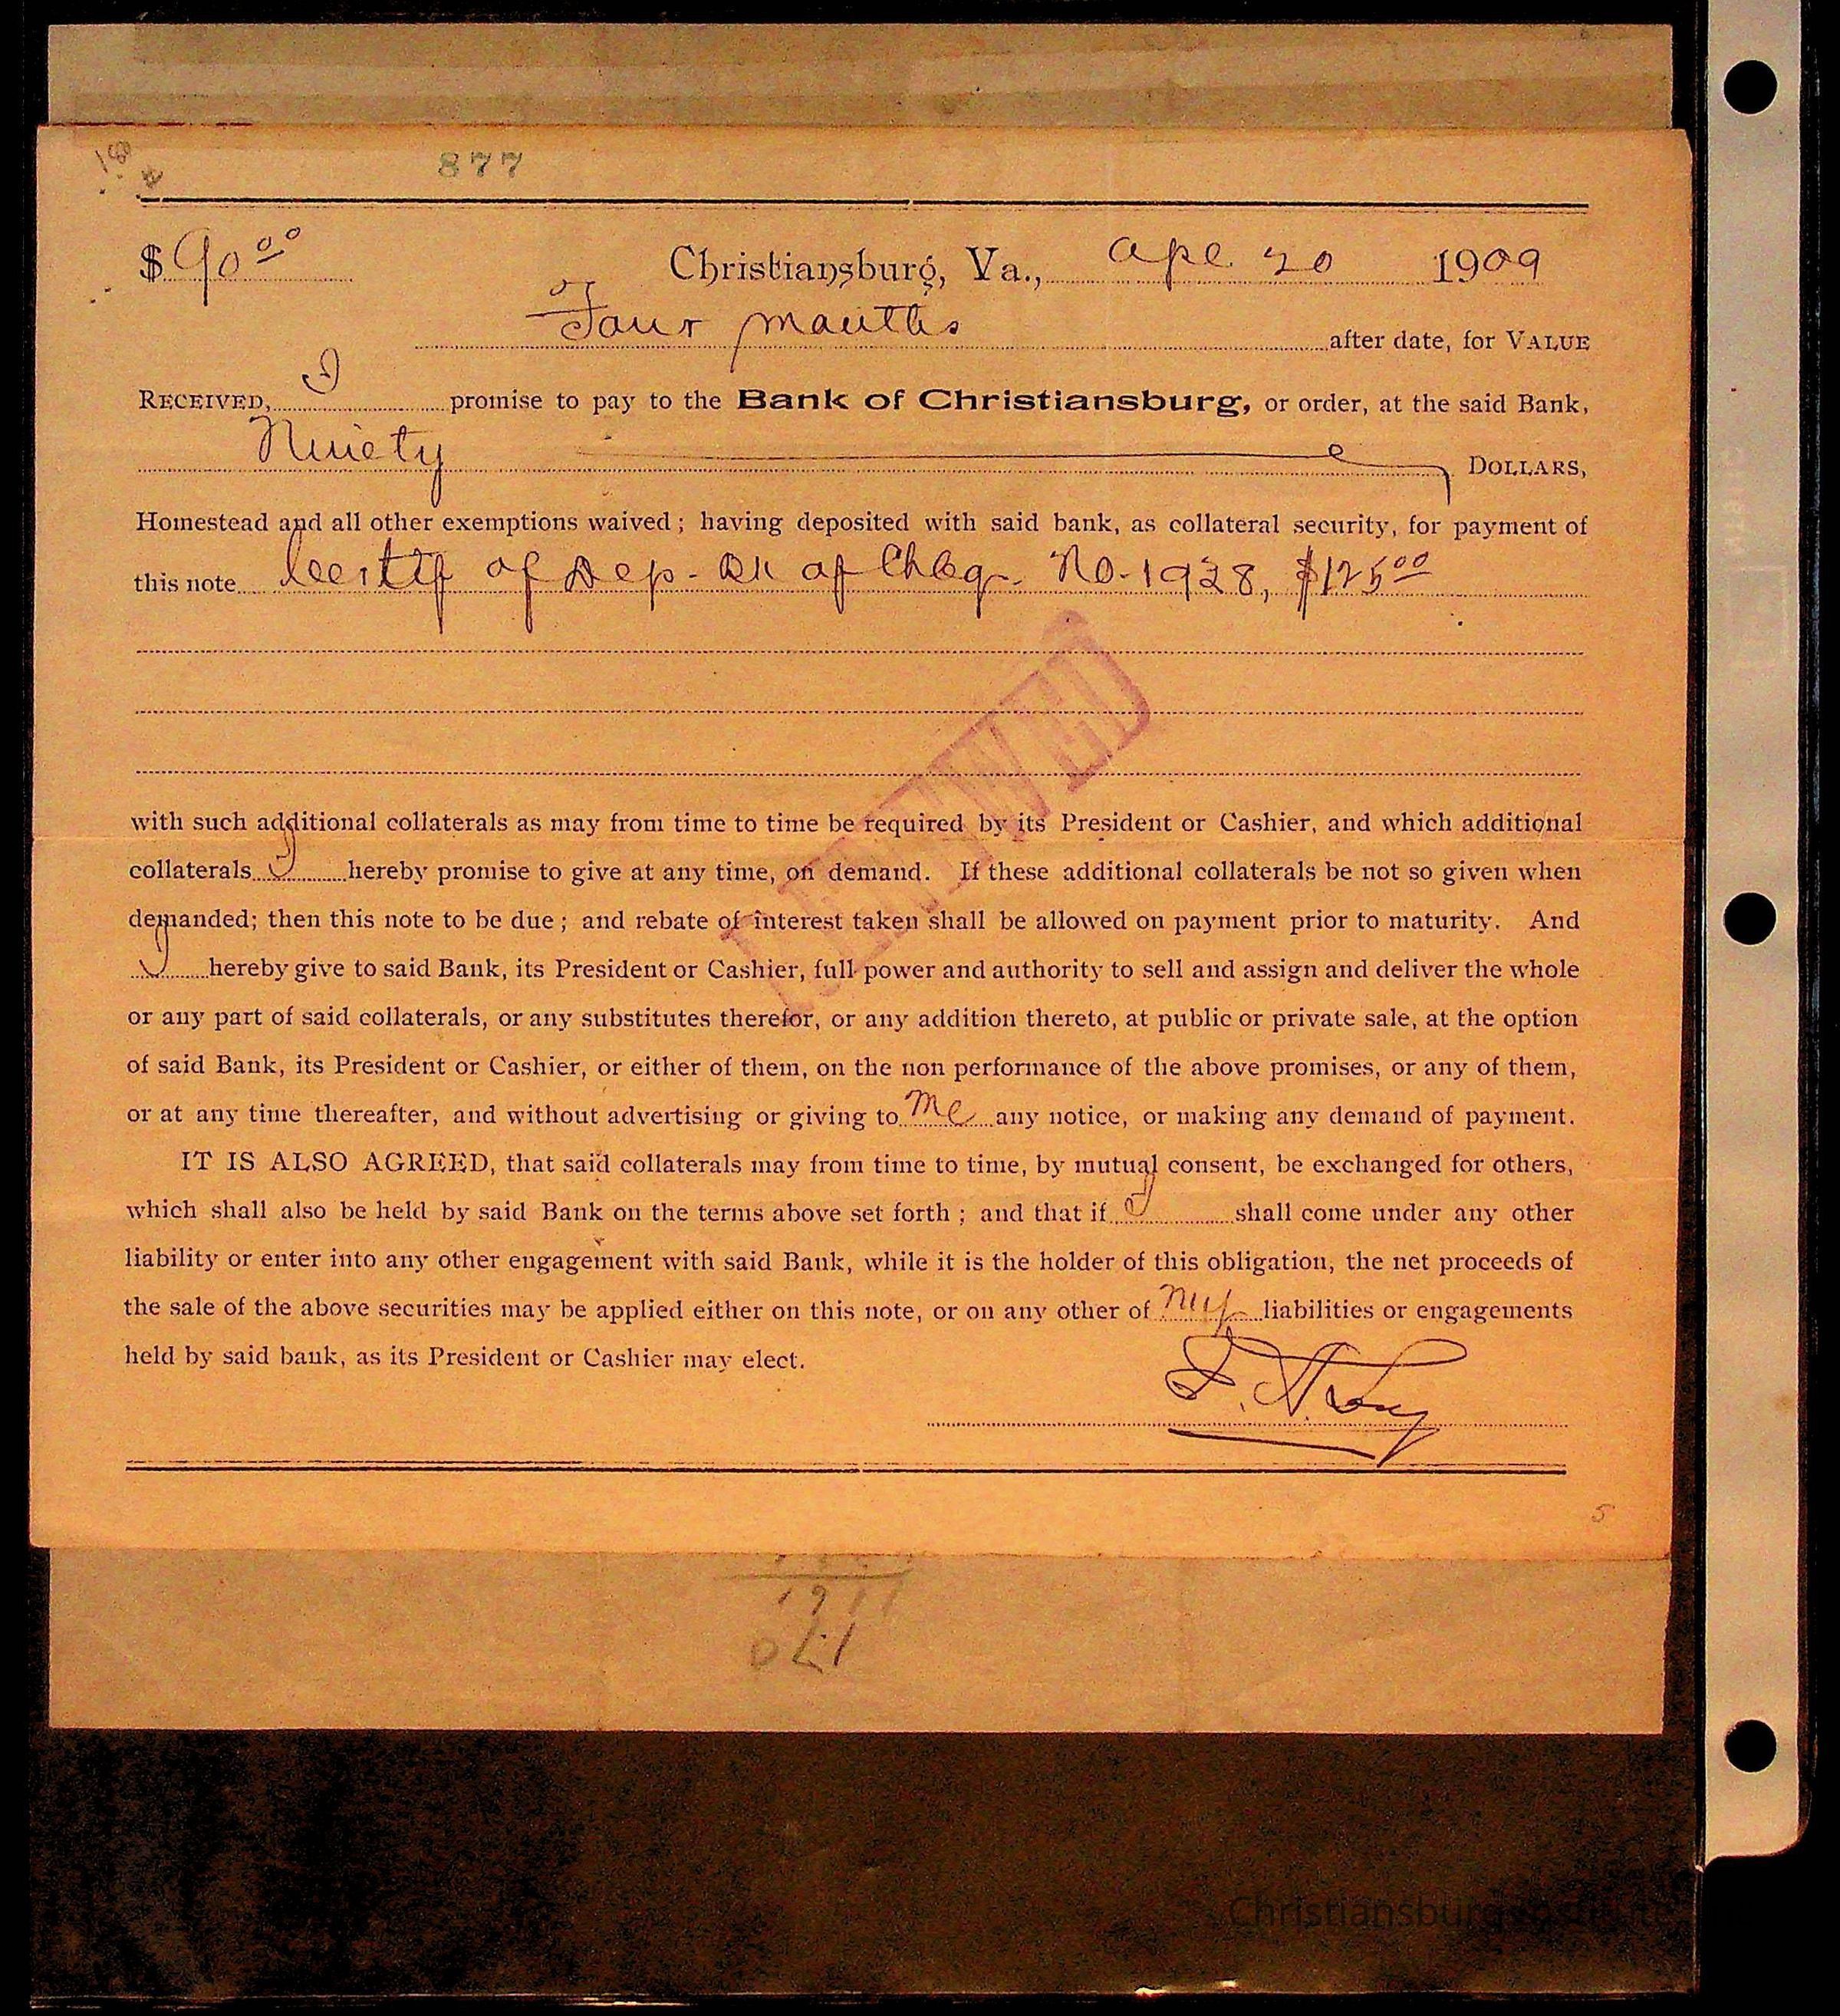 877
$ 90 00 Christiansburg, Va., Apl. 20 1909
Four months after date, for VALUE
RECEIVED, I promise to pay to the Bank of Christiansburg, or order, at the said Bank,
Ninety DOLLARS,
Homestead and all other exemptions waived; having deposited with said bank, as collateral security, for payment of
this note Certif of Dep. Bk of Chbg. No. 1928, $125 00
RENEWED
with such additional collaterals as may from time to time be required by its President or Cashier, and which additional
collaterals I hereby promise to give at any time, on demand. If these additional collaterals be not so given when
demanded; then this note to be due; and rebate of interest taken shall be allowed on payment prior to maturity. And
I hereby give to said Bank, its President or Cashier, full power and authority to sell and assign and deliver the whole
or any part of said collaterals, or any substitutes therefor, or any addition thereto, at public or private sale, at the option
of said Bank, its President or Cashier, or either of them, on the non performance of the above promises, or any of them,
or at any time thereafter, and without advertising or giving to me any notice, or making any demand of payment.
IT IS ALSO AGREED, that said collaterals may from time to time, by mutual consent, be exchanged for others,
which shall also be held by said Bank on the terms above set forth; and that if I shall come under any other
liability or enter into any other engagement with said Bank, while it is the holder of this obligation, the net proceeds of
the sale of the above securities may be applied either on this note, or on any other of my liabilities or engagements
held by said bank, as its President or Cashier may elect.
5
Christiansburg